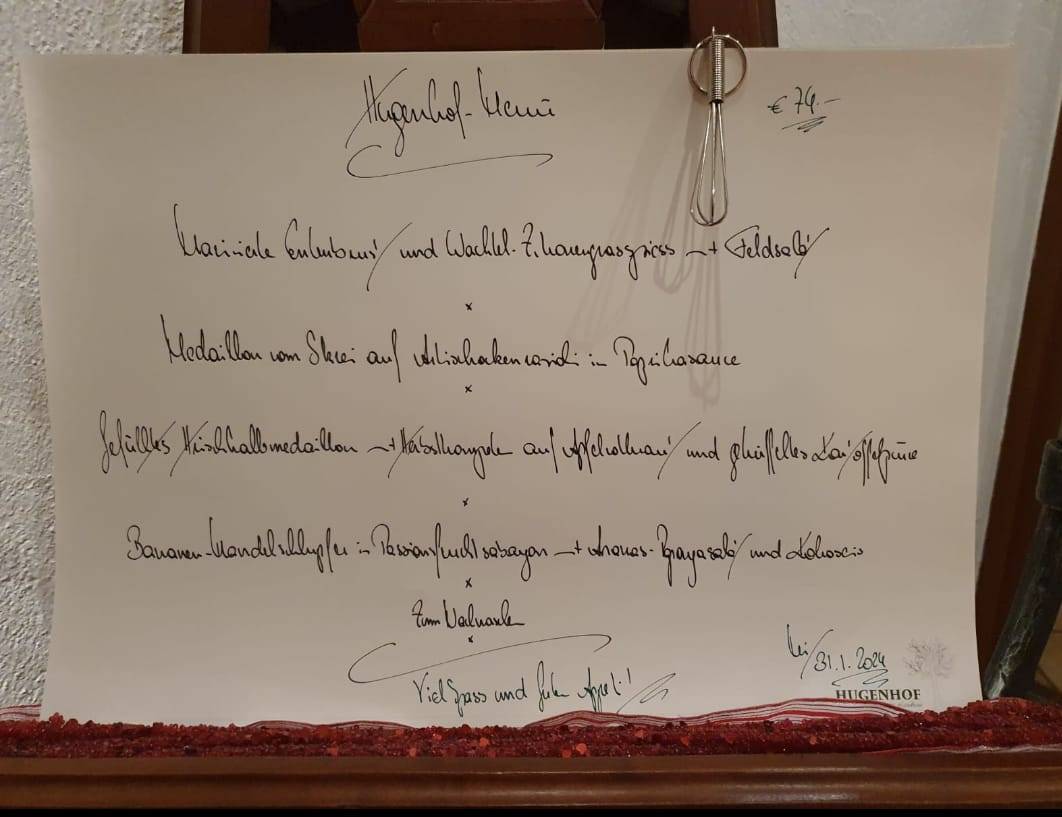 Hugenhof-Menü
€ 74.-
Marinierte Entenbrust und Wachtel-Zitronengrasspiess mit Feldsalat
x
Medaillon vom Skrei auf Artischockenravioli in Paprikasauce
x
Gefülltes Hirschkalbmedaillon mit auf Apfelrotkraut und getrüffeltes Kartoffelpüree
x
Bananen-Mandelschlupfer in Passionsfruchtsabayon mit Ananas-Papayasalat und Kokoseis
x
x
Viel Spass und Guten Appetit!
31.1.2024
HUGENHOF